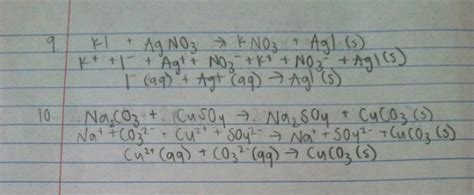 9. KI + AgNO₃ → KNO₃ + AgI (s)
K⁺ + I⁻ + Ag⁺ + NO₃⁻ → K⁺ + NO₃⁻ + AgI (s)
I⁻ (aq) + Ag⁺ (aq) → AgI (s)
10. Na₂CO₃ + CuSO₄ → Na₂SO₄ + CuCO₃ (s)
Na⁺ + CO₃²⁻ + Cu²⁺ + SO₄²⁻ → Na⁺ + SO₄²⁻ + CuCO₃ (s)
Cu²⁺ (aq) + CO₃²⁻ (aq) → CuCO₃ (s)